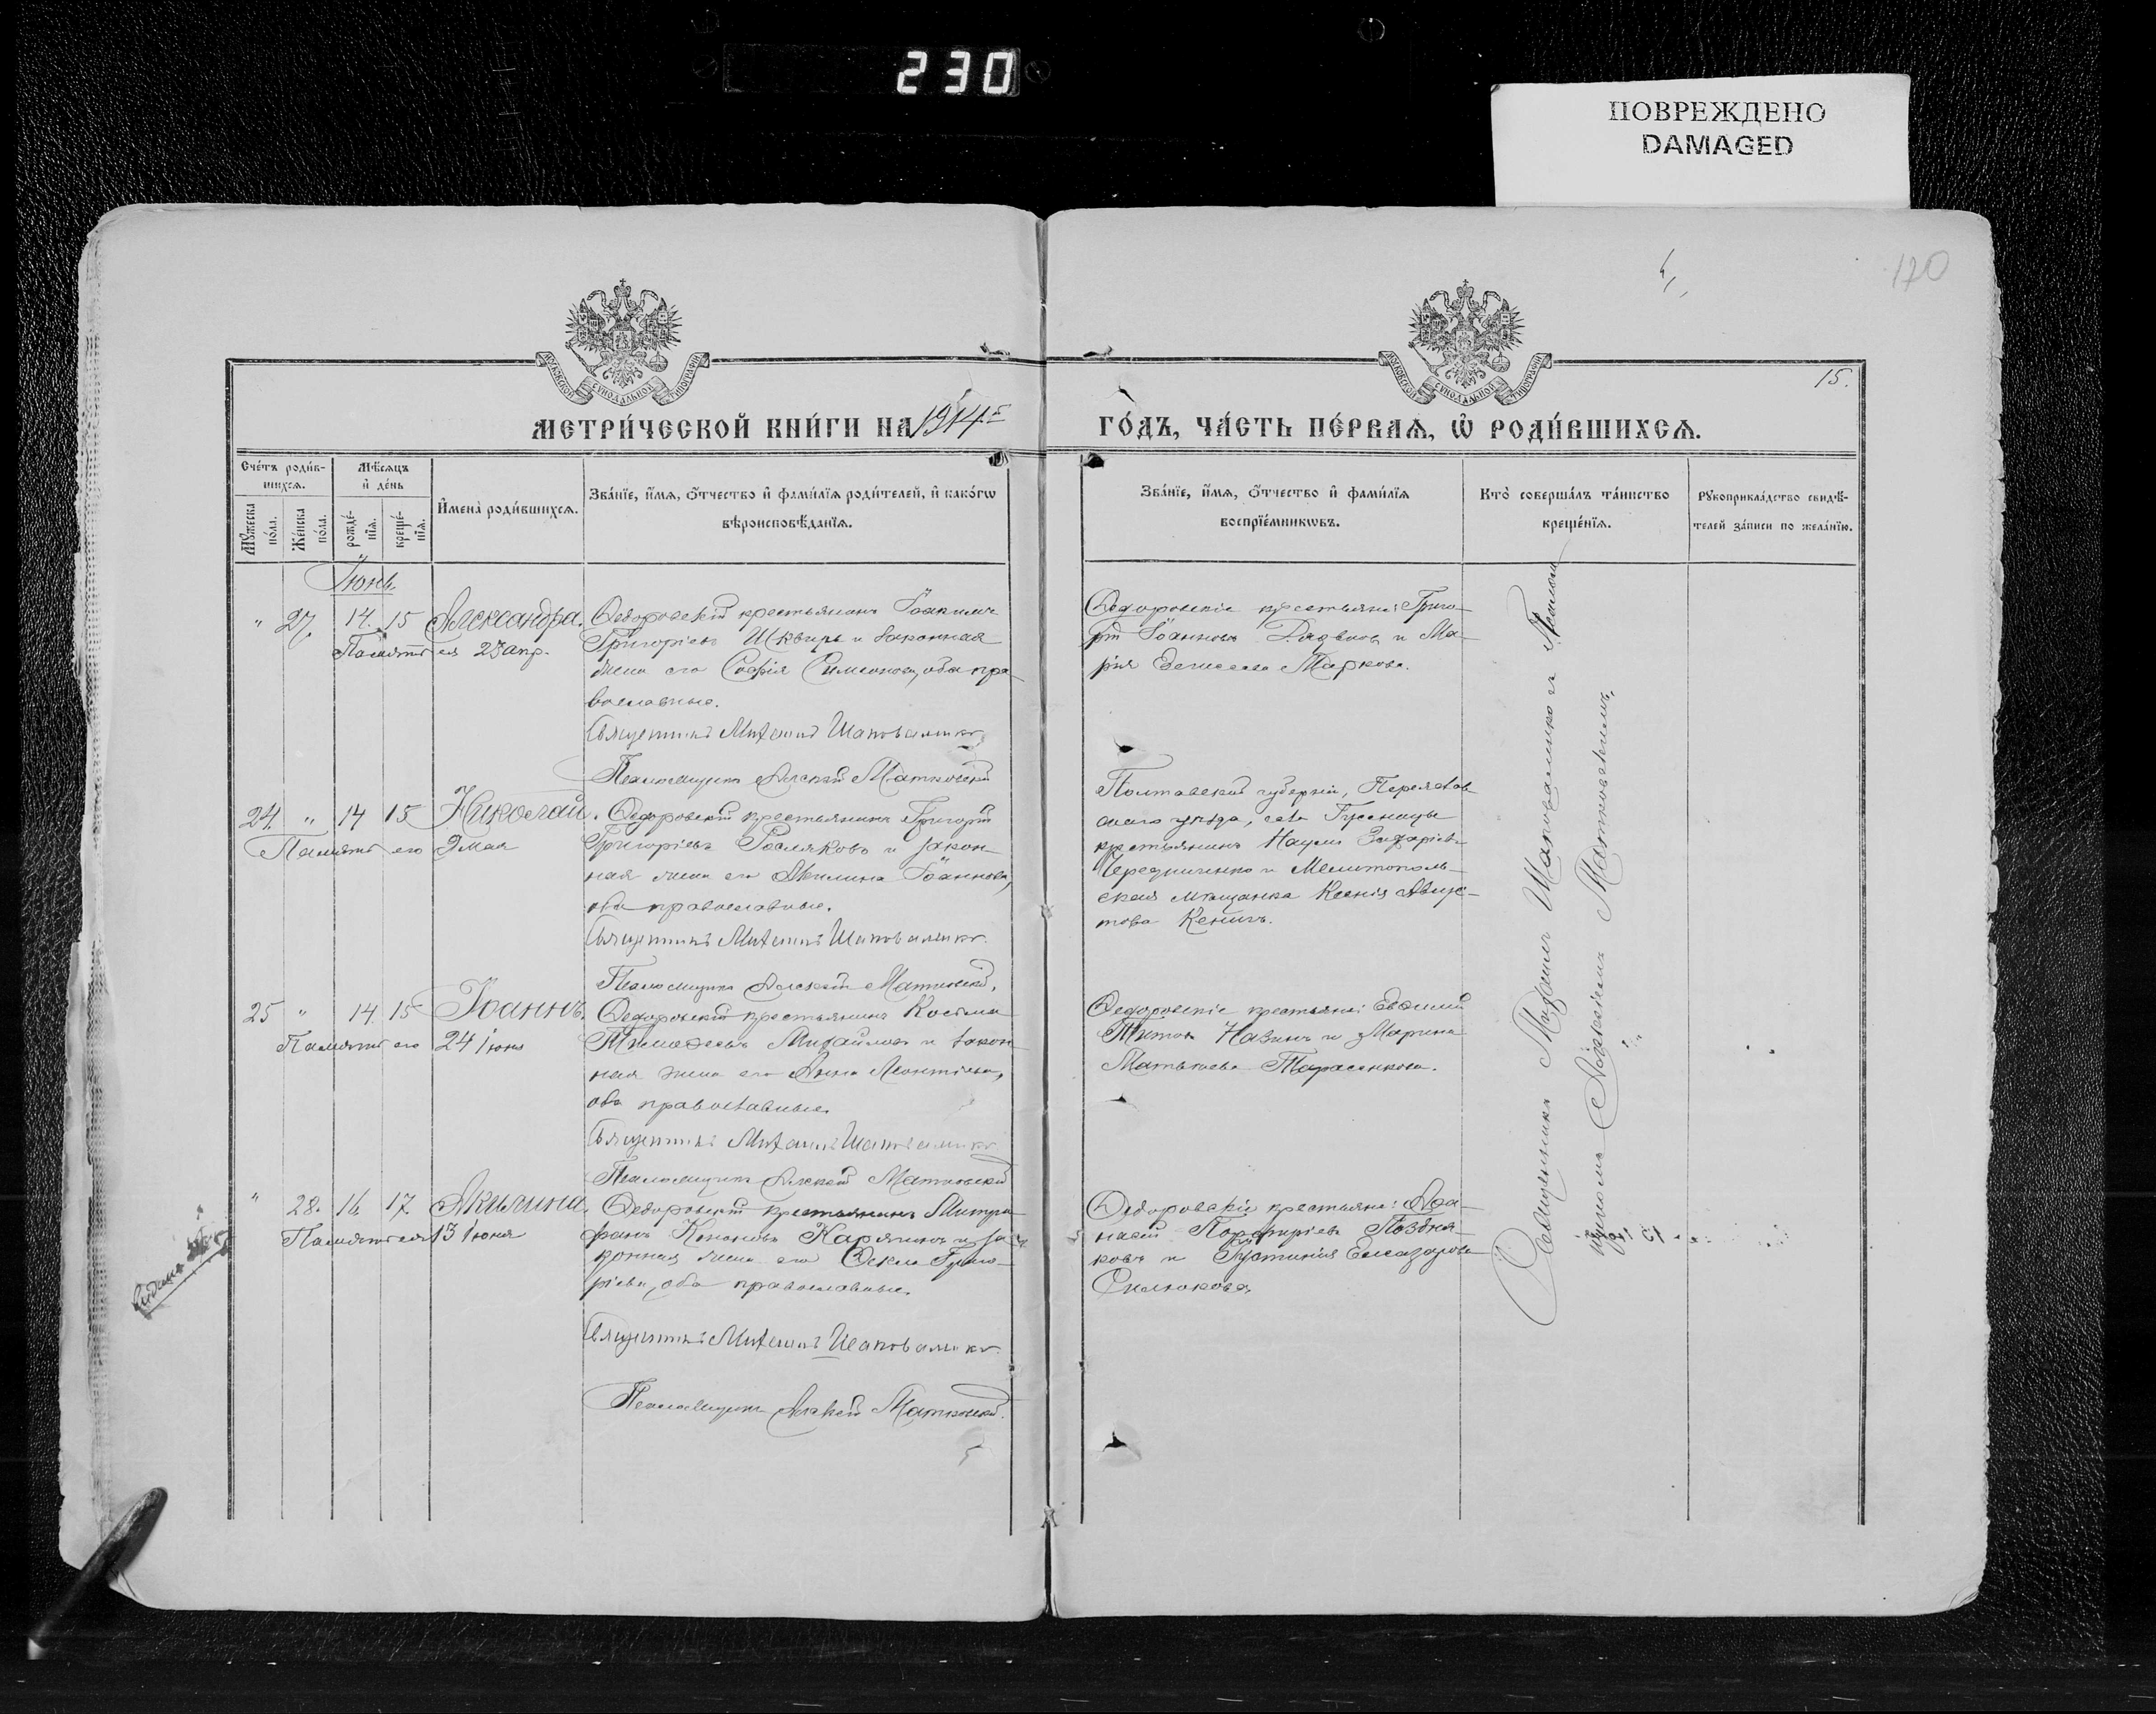 230
ПОВРЕЖДЕНО
DAMAGED
170
15.
МОСКОВСКОЙ СѴНОДАЛЬНОЙ ТИПОГРАФІИ
МОСКОВСКОЙ СѴНОДАЛЬНОЙ ТИПОГРАФІИ
МЕТРИ́ЧЕСКОЙ КНИ́ГИ НА 1914 г
ГО́ДЪ, ЧА́СТЬ ПЕ́РВАѦ, Ѡ҆ РОДИ́ВШИХСѦ.
Сче́тъ роди́в-
шихсѧ.
Мѣ́сѧцъ
и҆ де́нь
Мꙋ́жеска
по́ла.
Же́нска
по́ла.
рожде́-
нїѧ.
креще́-
нїѧ.
И҆мена̀ роди́вшихсѧ.
Зва́нїе, и҆́мѧ, ѻ҆́тчество и҆ фами́лїѧ роди́телей, и҆ како́гѡ
вѣроисповѣ́данїѧ.
Зва́нїе, и҆́мѧ, ѻ҆́тчество и҆ фами́лїѧ
воспрїе́мникѡвъ.
Кто̀ соверша́лъ та́инство
креще́нїѧ.
Рꙋкоприкла́дство свидѣ́-
телей за́писи по жела́нїю.
Іюнь.
" 27. 14. 15 Александра.
Память ея 23 апр.
Ѳедоровскій крестьянинъ Іоакимъ
Григоріевъ Шквиръ и законная
жена его Софія Симеонова, оба пра-
вославные.
Священникъ Михаилъ Шаповаленко
Псаломщикъ Алексѣй Матковскій
Ѳедоровскіе крестьяне: Григо-
рій Іоанновъ и Ма-
рія Елисеева Маркова.
24. " 14 15 Николай.
Память его 9 мая
Ѳедоровскій крестьянинъ Григорій
Григоріевъ Росляковъ и закон-
ная жена его Акилина Іоаннова,
оба православные.
Священникъ Михаилъ Шаповаленко.
Псаломщикъ Алексѣй Матковскій.
Полтавской губерніи, Переяслав-
скаго уѣзда, села Гусеницы
крестьянинъ Наумъ Захаріевъ
Чередниченко и Мелитополь-
ская мѣщанка Ксенія Авгус-
това Кенигъ.
25 " 14 15 Іоаннъ.
Память его 24 іюня
Ѳедоровскій крестьянинъ Косьма
Тимоѳеевъ Михайловъ и закон-
ная жена его Анна Леонтіева,
оба православные.
Священникъ Михаилъ Шаповаленко.
Псаломщикъ Алексѣй Матковскій
Ѳедоровскіе крестьяне: Евѳимій
Титовъ Навинъ и Марина
Матвѣева Тарасенкова.
" 28. 16 17 Акилина.
Память ея 13 іюня
Ѳедоровскій крестьянинъ Митро-
фанъ Кононовъ Карякинъ и за-
конная жена его Ѳекла Григо-
ріева, оба православные.
Священникъ Михаилъ Шаповаленко.
Псаломщикъ Алексѣй Матковскій.
Ѳедоровскіе крестьяне: Аѳа-
насій Порфиріевъ Поздня-
ковъ и Іустинія Елеазарова
Силюкова.
Священникъ Михаилъ Шаповаленко съ Псалом-
щикомъ Алексѣемъ Матковскимъ.